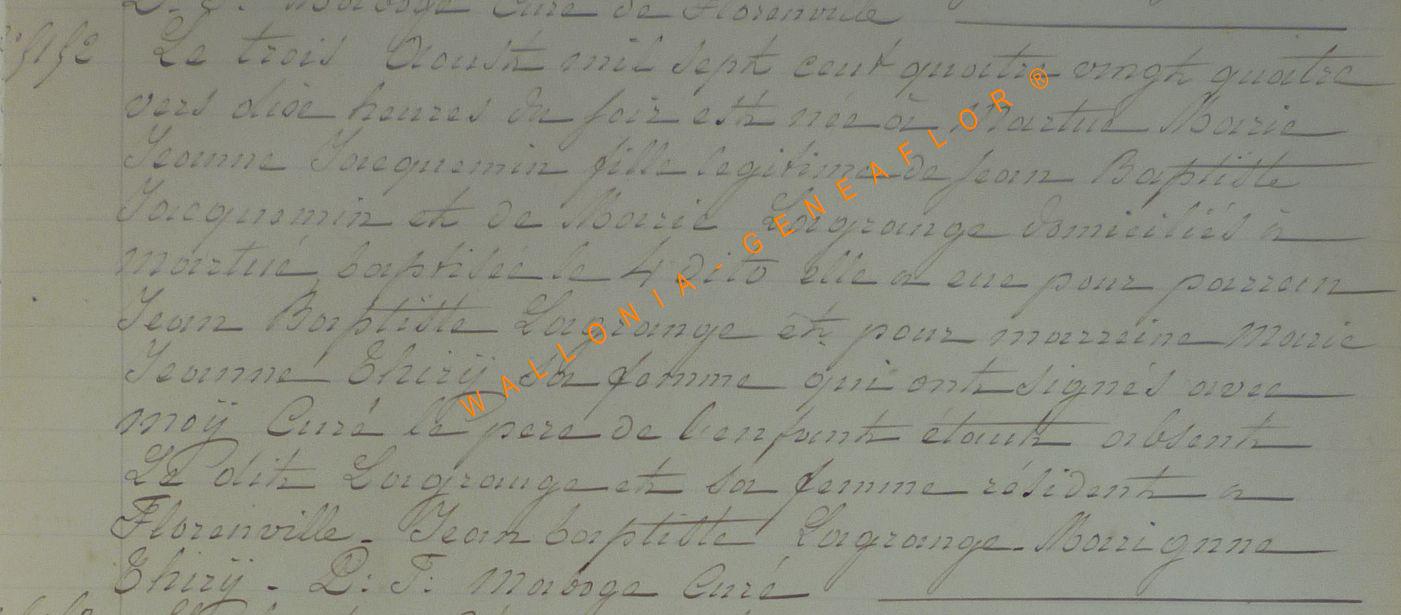 D. F. Maboge Curé de Florenville
Le trois Aoust mil sept cent quatre vingt quatre
vers dise heures du soir est née à Martué Marie
Jeanne Jacquemin fille legitime de Jean Baptiste
Jacquemin et de Marie Lagrange domiciliés à
martué baptisée le 4 dito elle a eue pour parrain
Jean Baptiste Lagrange et pour marreine Marie
Jeanne Thirÿ sa femme qui ont signés avec
moÿ Curé le pere de l'enfant étant absent
Le dit Lagrange et sa femme résident a
Florenville - Jean baptiste Lagrange - Marignne
Thirÿ - D: F: Maboge Curé
WALLONIA-GENEAFLOR ®